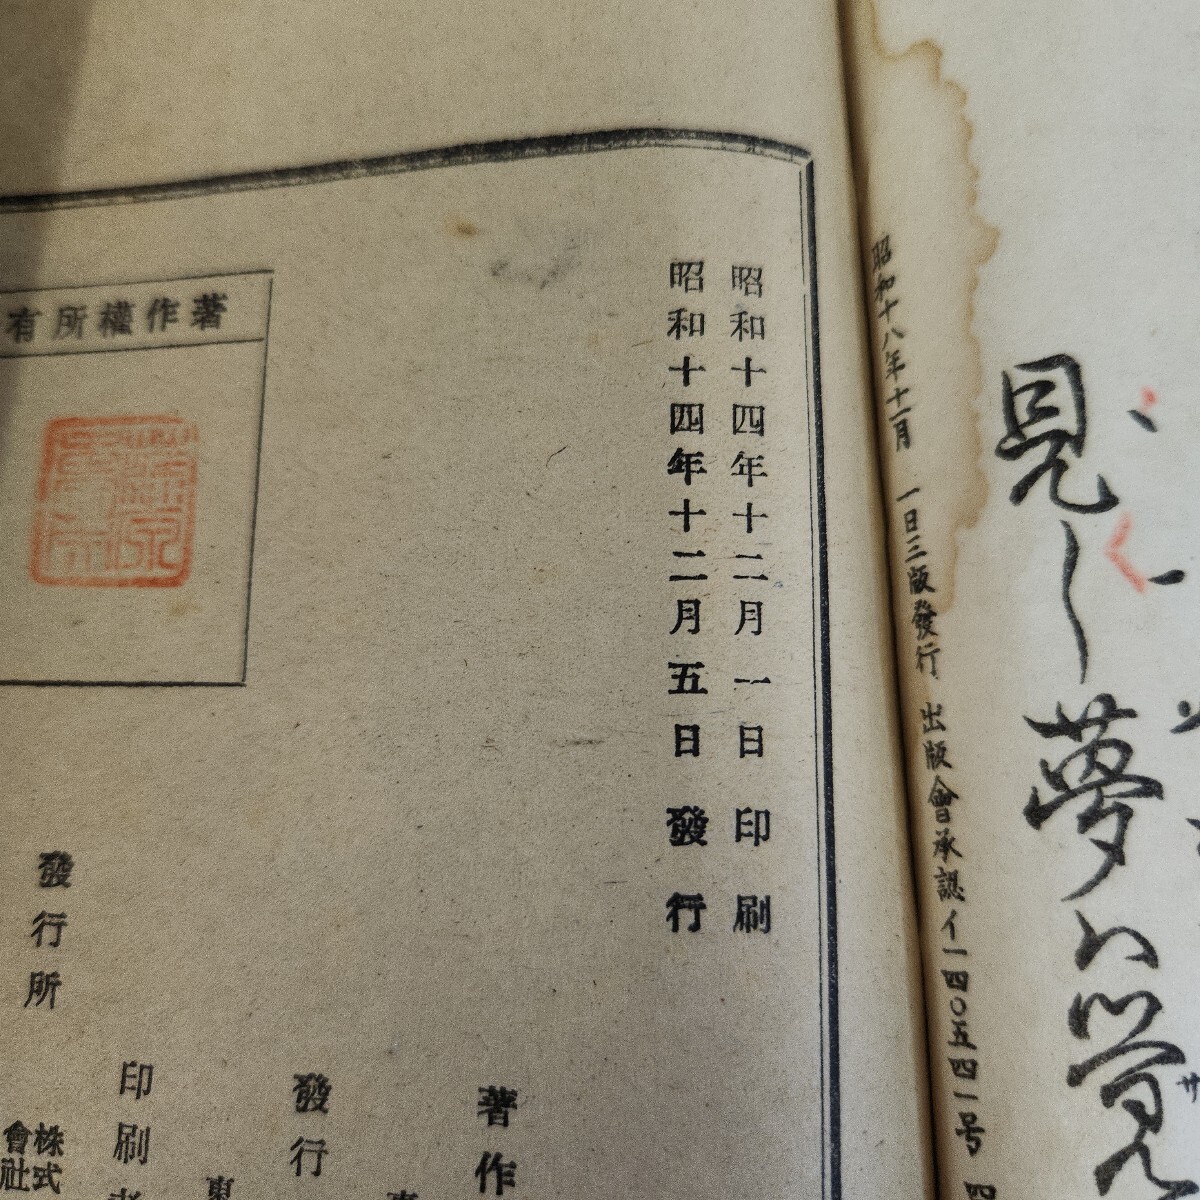 見し夢ハ覚
昭和十八年十一月 一日三版發行 出版會承認イ一四〇五四一号
昭和十四年十二月一日 印刷
昭和十四年十二月五日 發行
著作權所有
著作
發行
印刷
發行所
株式
會社